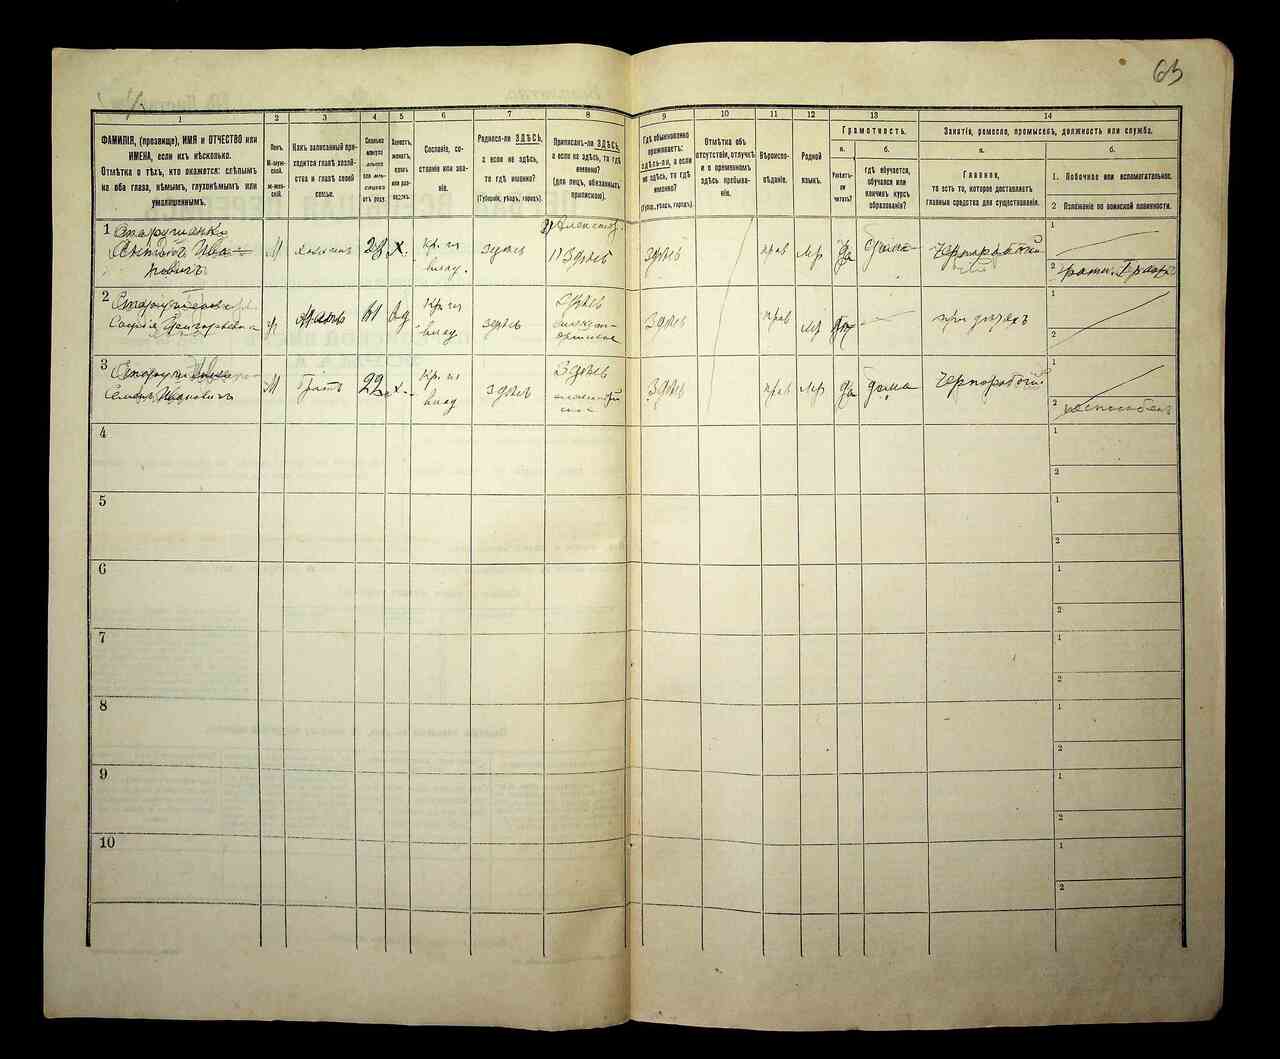 63
1
2
3
4
5
6
7
8
9
10
11
12
13
14
ФАМИЛІЯ, (прозвище), ИМЯ и ОТЧЕСТВО или
ИМЕНА, если ихъ нѣсколько.
Отмѣтка о тѣхъ, кто окажется: слѣпымъ
на оба глаза, нѣмымъ, глухонѣмымъ или
умалишеннымъ.
Полъ
М-муж-
ской.
Ж-жен-
скій.
Какъ записанный при-
ходится главѣ хозяй-
ства и главѣ своей
семьи.
Сколько
минуло
лѣтъ
или мѣ-
сяцевъ
отъ роду.
Холостъ,
женатъ,
вдовъ
или раз-
веденъ.
Сословіе, со-
стояніе или зва-
ніе.
Родился-ли ЗДѢСЬ,
а если не здѣсь,
то гдѣ именно?
(Губернія, уѣздъ, городъ).
Приписанъ-ли ЗДѢСЬ,
а если не здѣсь, то гдѣ
именно?
(для лицъ, обязанныхъ
припискою).
Гдѣ обыкновенно
проживаетъ:
здѣсь-ли, а если
не здѣсь, то гдѣ
именно?
(Губерн., уѣздъ, городъ).
Отмѣтка объ
отсутствіи, отлучкѣ
и о временномъ
здѣсь пребыва-
ніи.
Вѣроиспо-
вѣданіе.
Родной
языкъ.
Грамотность.
а.
Умѣетъ-
ли
читать?
б.
гдѣ обучается,
обучался или
кончилъ курсъ
образованія?
Занятіе, ремесло, промыселъ, должность или служба.
а.
Главное,
то есть то, которое доставляетъ
главныя средства для существованія.
б.
1. Побочное или вспомогательное.
2 Положеніе по воинской повинности.
1
Ива-
новичъ
М
хозяинъ
28
х.
кр. из
влад.
здѣсь
Здѣсь
здѣсь
прав
мр
да
дома
Чернорабочій
1
2
2
Софія Григорьевна
ж
мать
61
вд
кр. из
влад
здѣсь
Здѣсь
Здѣсь
прав
мр
при дѣтяхъ
1
2
3
Семенъ Ивановичъ
М
братъ
22
х.
кр. из
влад
здѣсь
Здѣсь
Здѣсь
прав
мр
да
дома
Чернорабочій
1
2
4
1
2
5
1
2
6
1
2
7
1
2
8
1
2
9
1
2
10
1
2